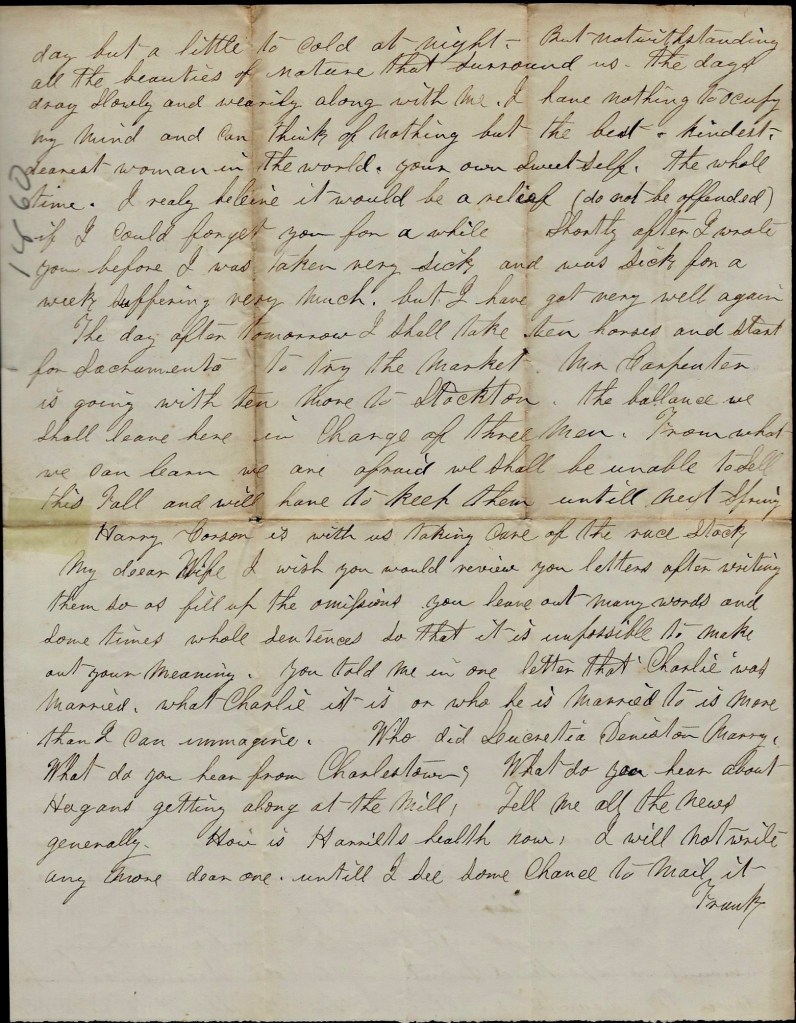 day but a little to cold at night - But notwithstanding
all the beauties of nature that surround us - the days
drag slowly and wearily along with me. I have nothing to ocupy
my mind and can think of nothing but the best - kindest -
dearest woman in the world. your own sweet self. The whole
time. I realy beleive it would be a relief (do not be offended)
if I could forget you for a while Shortly after I wrote
you before I was taken very sick and was sick for a
week suffering very much. but I have got very well again
The day after tomorrow I shall take ten horses and start
for Sacramento to try the market. Mr Carpenter
is going with ten more to Stockton. the ballance we
shall leave here in charge of three men. From what
we can learn we are afraid we shall be unable to sell
this Fall and will have to keep them untill next Spring
Harry Corson is with us taking care of the race stock
My deear Wife I wish you would review you letters after writing
them so as fill up the omissions you leave out many words and
some times whole sentences so that it is impossible to make
out your meaning. you told me in one letter that "Charlie" was
married. what Charlie it is or who he is married to is more
than I can immagine. Who did Lucretia Deniston marry,
What do you hear from Charlestown, What do you hear about
Hogans getting along at the mill, Tell me all the news
generally. How is Harriets health now, I will not write
any more dear one. untill I see some chance to mail it
Frank
1860